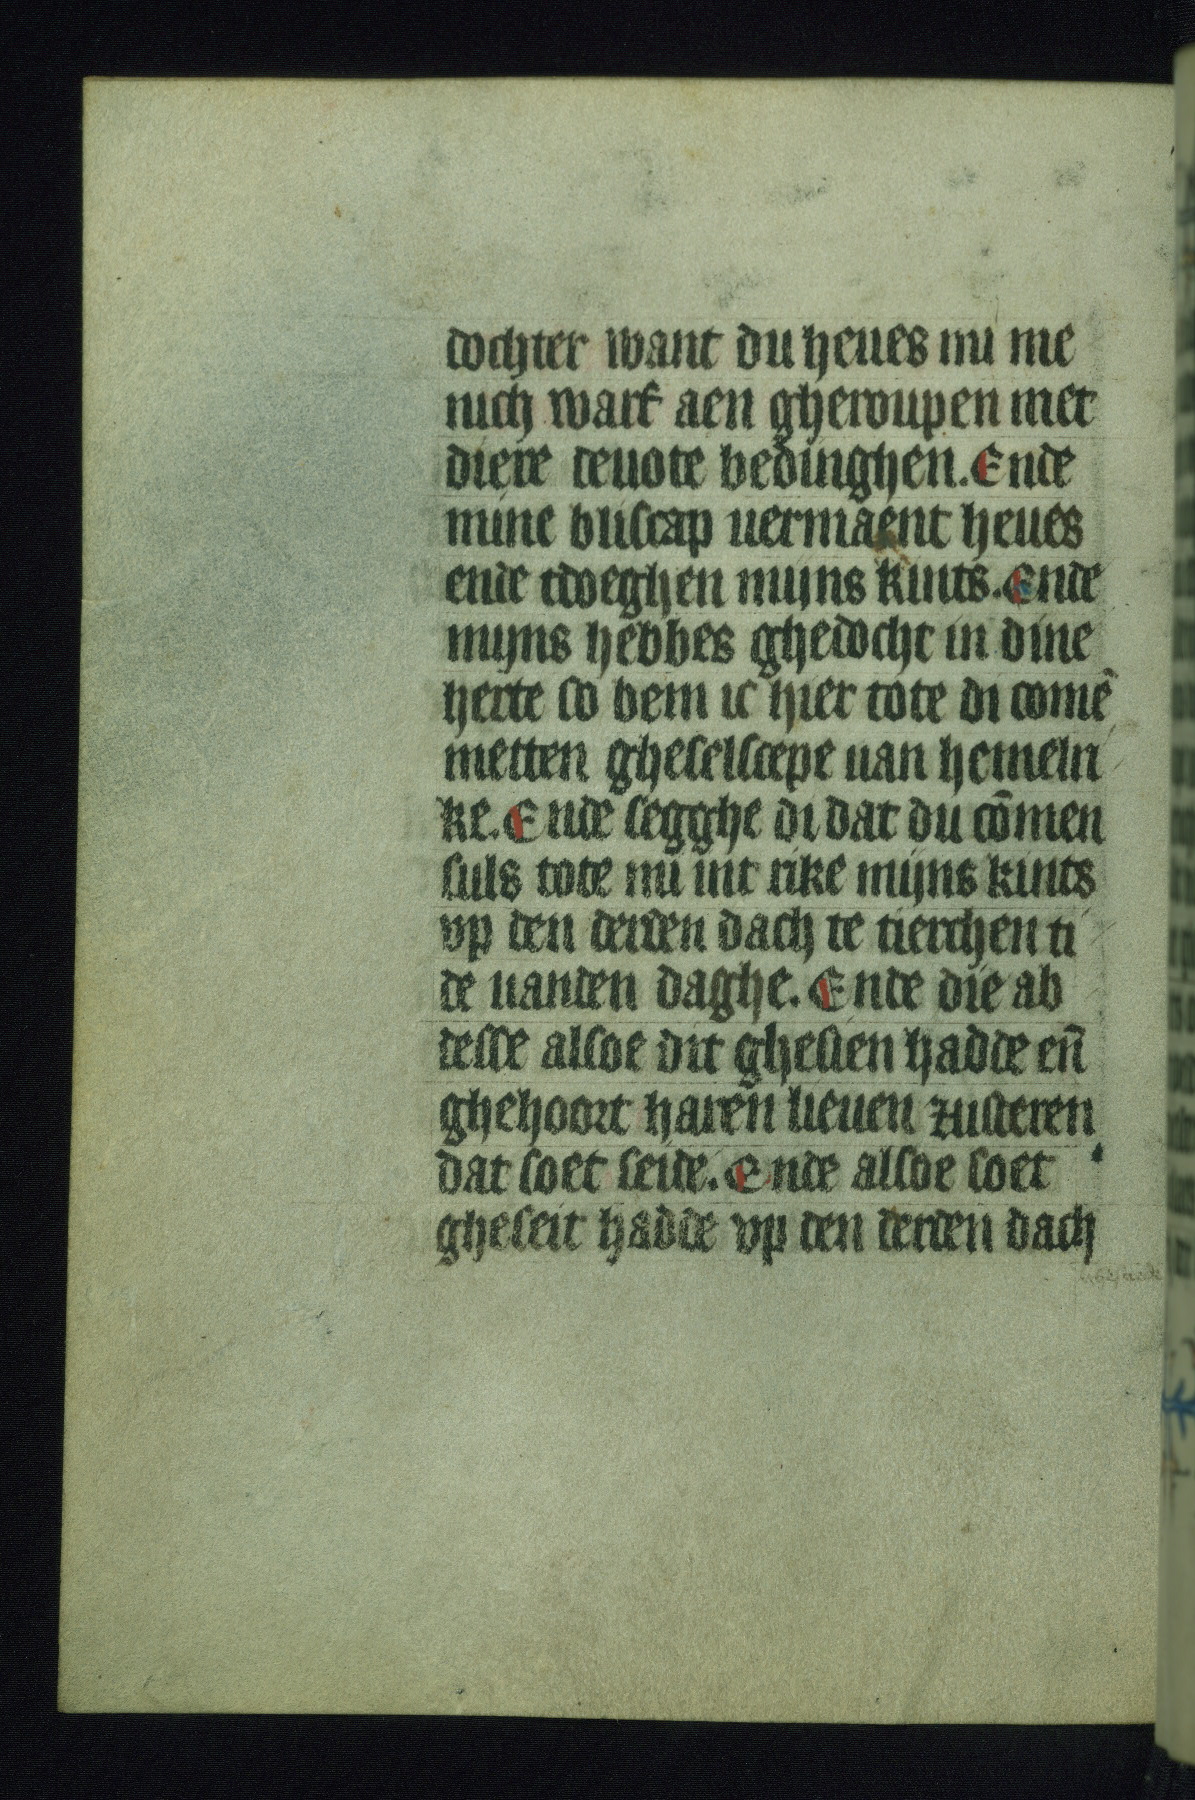 dochter want du heues mi me
nich warf aen gheroupen met
diere deuote bedinghen. Ende
mine bliscap uermaent heues
ende droeghen mijns kints. Ende
mijns hebbes ghedocht in dine
herte so bem ic hier tote di comē
metten gheselscepe uan hemelri
ke. Ende segghe di dat du cōmen
suls tote mi int rike mijns kints
vp den derden dach te tierchen ti
de uanden daghe. Ende die ab
desse alsoe dit ghesien hadde en̄
ghehoort haren lieuen zusteren
dat soet seide. Ende alsoe soet
gheseit hadde vp den derden dach